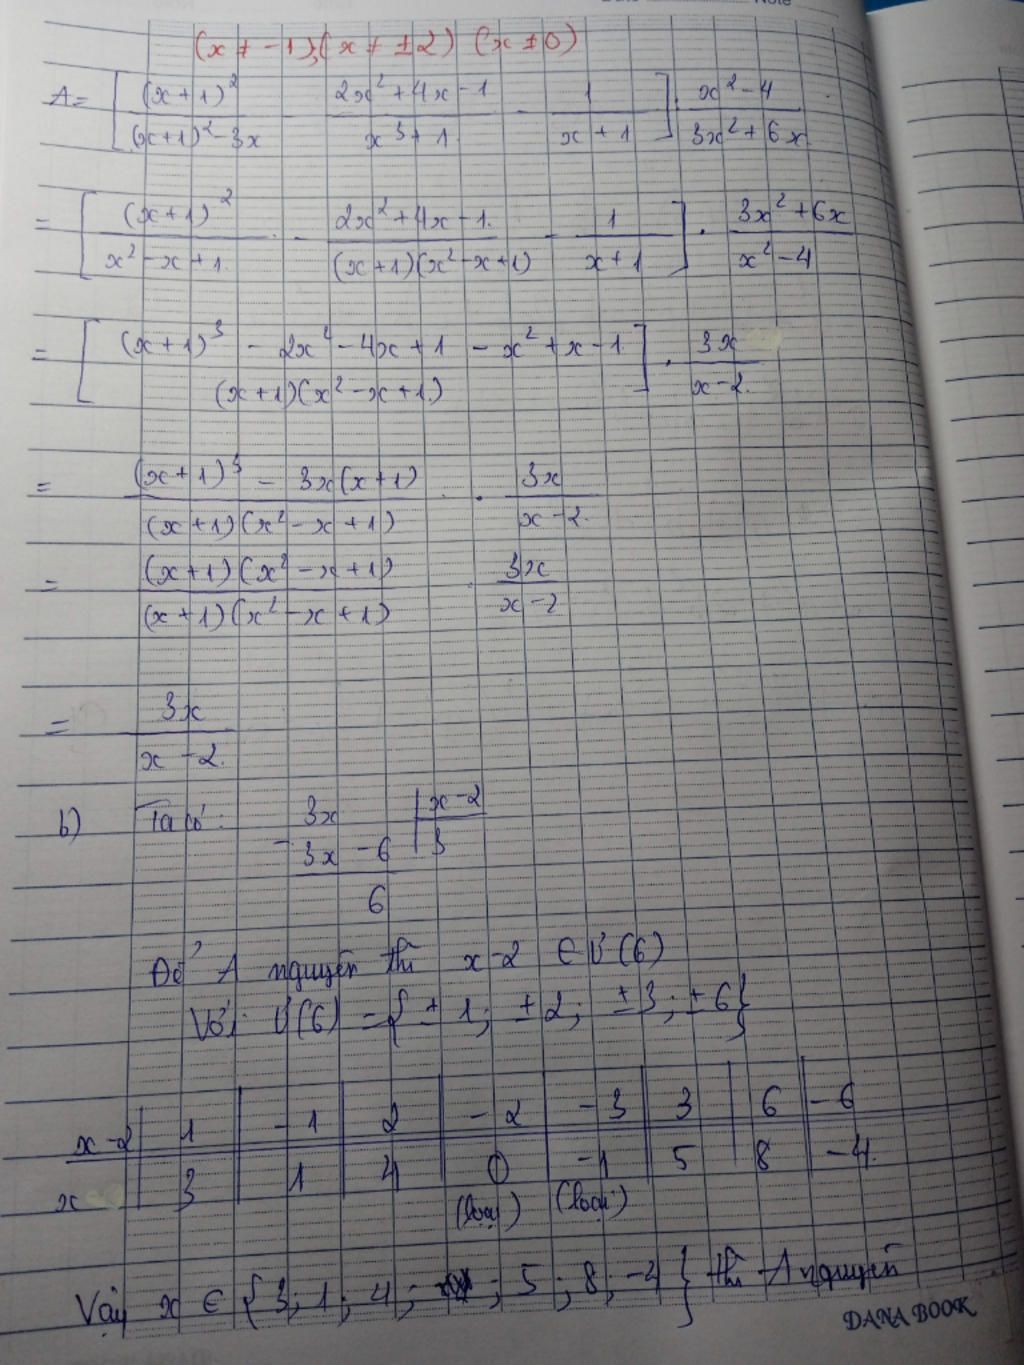 Note
(x ≠ -1); (x ≠ ±2) (x ≠ 0)
A = [ (x+1)² / ((x+1)² - 3x) - (2x² + 4x - 1) / (x³ + 1) - 1 / (x + 1) ] : (x² - 4) / (3x² + 6x)
= [ (x+1)² / (x² - x + 1) - (2x² + 4x - 1) / ((x+1)(x² - x + 1)) - 1 / (x+1) ] . (3x² + 6x) / (x² - 4)
= [ ((x+1)³ - 2x² - 4x + 1 - x² + x - 1) / ((x+1)(x² - x + 1)) ] . 3x / (x - 2)
= ((x+1)³ - 3x(x+1)) / ((x+1)(x² - x + 1)) . 3x / (x - 2)
= (x+1)(x² - x + 1) / ((x+1)(x² - x + 1)) . 3x / (x - 2)
= 3x / (x - 2)
b) Ta có: 3x | x - 2
- 3x - 6 | 3
6
Để A nguyên thì x - 2 ∈ Ư(6)
Với Ư(6) = { ±1; ±2; ±3; ±6}
x - 2 | 1 | -1 | 2 | -2 | -3 | 3 | 6 | -6
x | 3 | 1 | 4 | 0 | -1 | 5 | 8 | -4
(loại) (loại)
Vậy x ∈ { 3; 1; 4; ; 5; 8; -4 } thì A nguyên
DANA BOOK